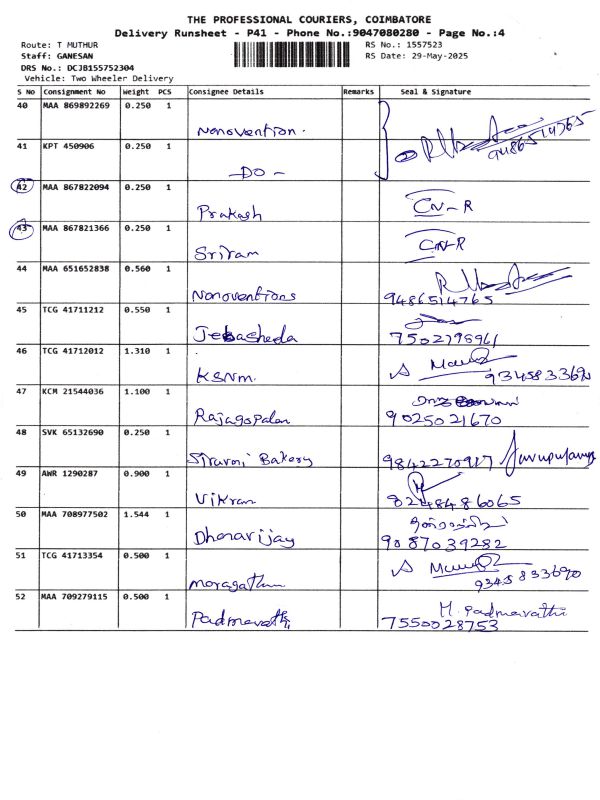 THE PROFESSIONAL COURIERS, COIMBATORE
Delivery Runsheet - P41 - Phone No.:9047080280 - Page No.:4
Route: T MUTHUR RS No.: 1557523
Staff: GANESAN RS Date: 29-May-2025
DRS No.: DCJB155752304
Vehicle: Two Wheeler Delivery
S No Consignment No Weight PCS Consignee Details Remarks Seal & Signature
40 MAA 869892269 0.250 1
Nonovention. 9486514765
41 KPT 450906 0.250 1
-DO-
42 MAA 867822094 0.250 1
Prakash CN-R
43 MAA 867821366 0.250 1
Sriram CN-R
44 MAA 651652838 0.560 1
Nonoventions 9486514765
45 TCG 41711212 0.550 1
Jebasheda 7502795961
46 TCG 41712012 1.310 1
KSNM. 9345833690
47 KCM 21544036 1.100 1
Rajagopalan 9025021670
48 SVK 65132690 0.250 1
Sravni Bakery 9842270917
49 AWR 1290287 0.900 1
Vikram 8248486065
50 MAA 708977502 1.544 1
Dhanavijay 9087039282
51 TCG 41713354 0.500 1
moragatham 9345833690
52 MAA 709279115 0.500 1
M. Padmavathi
Padmavathi 7550028753